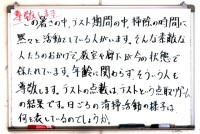 尊敬します
この暑さの中、テスト期間の中、掃除の時間に
黙々と活動としている人がいます。そんな素敵な
人たちのおかげで、教室や廊下が今の状態で
保たれています。年齢に関わらず、そういう人を
尊敬します。テストの点数は、テストという点取りゲーム
の結果です。日ごろの清掃活動の様子は、
何を表しているのでしょうか。